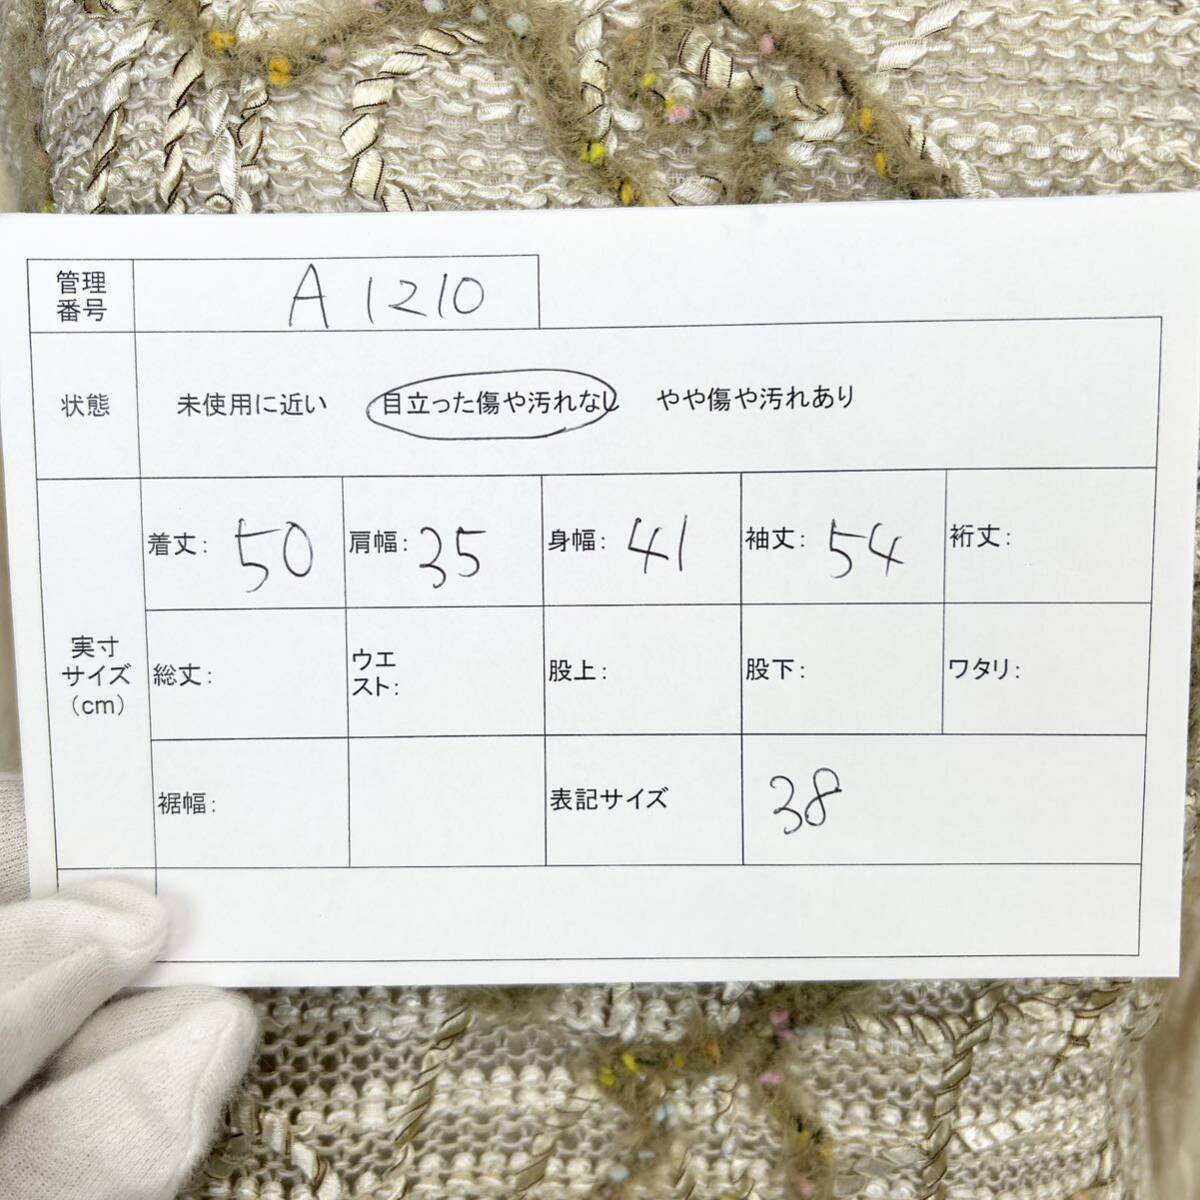 管理
番号
A 1210
状態
未使用に近い 目立った傷や汚れなし やや傷や汚れあり
実寸
サイズ
(cm)
着丈: 50 肩幅: 35 身幅: 41 袖丈: 54 裄丈:
総丈: ウエ
スト: 股上: 股下: ワタリ:
裾幅: 表記サイズ 38